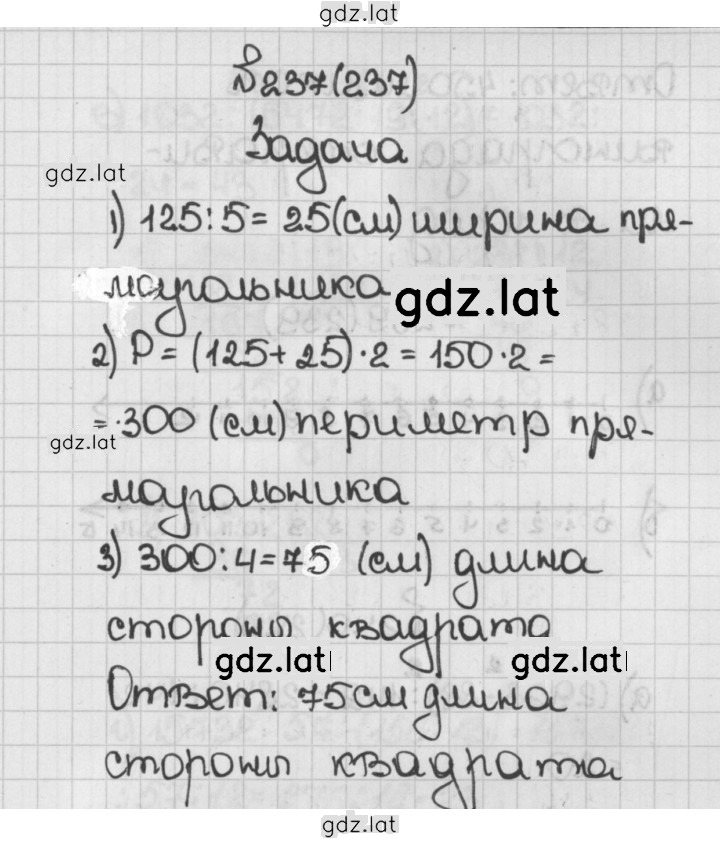 gdz.lat
№237(237)
Задача
gdz.lat
1) 125:5= 25(см) ширина пря-
моугольника
gdz.lat
2) P = (125+ 25)·2 = 150·2 =
= 300 (см) периметр пря-
gdz.lat
моугольника
3) 300:4=75 (см) длина
стороны квадрата
gdz.lat gdz.lat
Ответ: 75см длина
стороны квадрата
gdz.lat